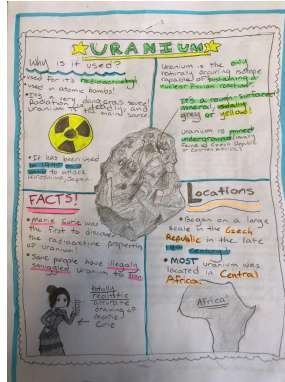 URANIUM
Why is it used?
Used for it's radioactivity!
Used in atomic bombs!
It's very dangerous since
Radiation is deadly and
uranium is the main source.
• It has been used
in 1945 in a
to attack
Hiroshima, Japan.
Uranium is the only
naturally occuring isotope
capable of sustaining a
nuclear fission reaction.
It's a rough-surfaced
mineral usually
grey or yellow!
Uranium is mined
underground
found in Czech Republic
or Central Africa.
FACTS!
• Marie Curie was
the first to discover
the radioactive property
of uranium.
• Some people have illegally
smuggled uranium to
totally
realistic
accurate
drawing of
Marie
Curie
Locations
• Began on a large
scale in the Czech
Republic in the late
century!
• MOST uranium was
located in Central
Africa.
Africa!